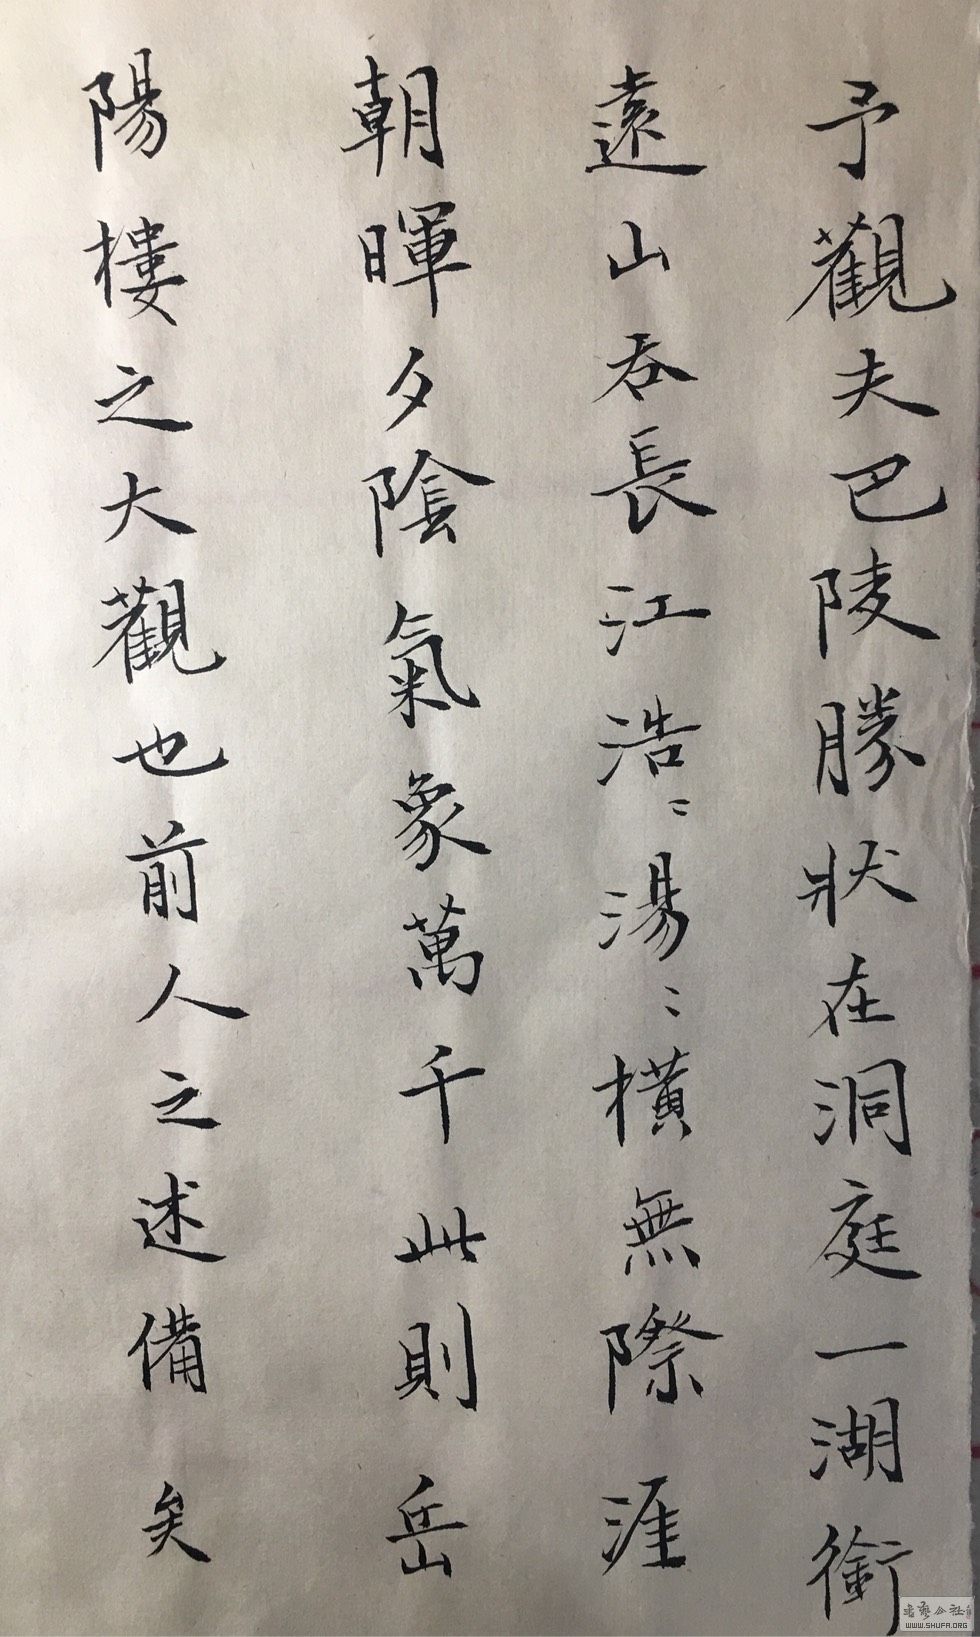 予觀夫巴陵勝狀在洞庭一湖銜
遠山吞長江浩〻湯〻橫無際涯
朝暉夕陰氣象萬千此則岳
陽樓之大觀也前人之述備矣
WWW.SHUFA.ORG